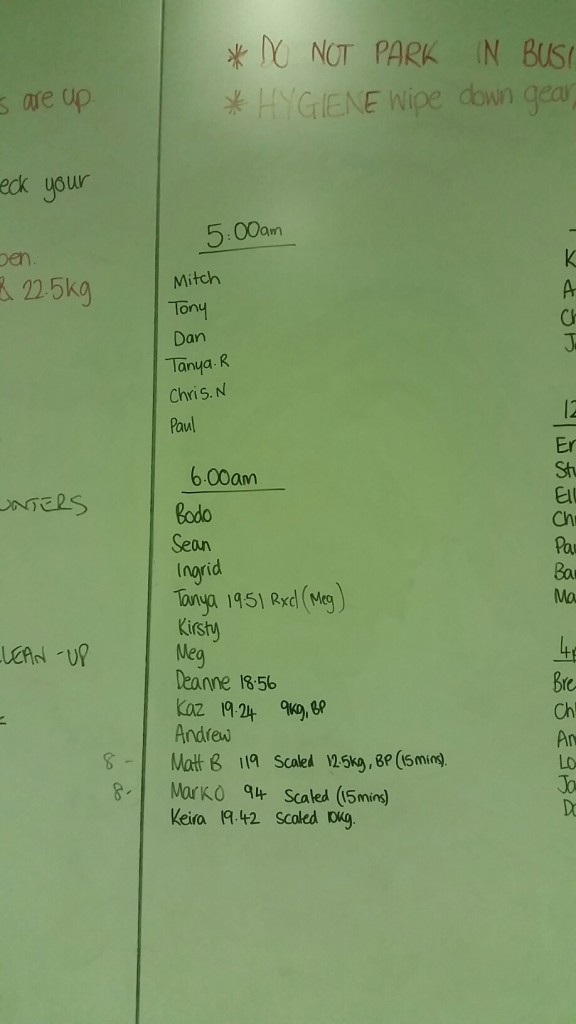 * DO NOT PARK IN BUSI
* HYGIENE wipe down gear,
s are up.
eck your
pen.
& 22.5kg
UNTERS
LEAN-UP
5:00am
Mitch
Tony
Dan
Tanya.R
Chris.N
Paul
6.00am
Bodo
Sean
Ingrid
Tanya 19.51 Rxd (Meg)
Kirsty
Meg
Deanne 18.56
Kaz 19.24 9kg, BP
Andrew
8 - Matt B 119 Scaled 12.5kg, BP (15mins).
8 - Mark O 94 Scaled (15mins)
Keira 19.42 scaled 10kg.
K
A
Ch
J
12
Er
St
Ell
Chr
Pau
Bar
Ma
4p
Bre
Ch
An
Lo
Ja
Do